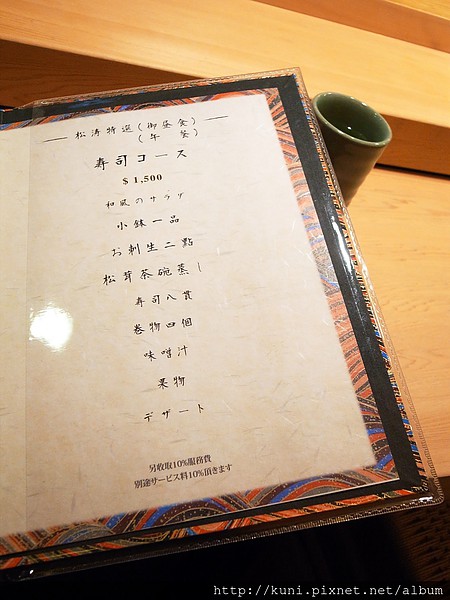 松濤特選(御昼食)
(午餐)
寿司コース
$1,500
和風のサラダ
小鉢一品
お刺生二點
松茸茶碗蒸し
寿司八貫
巻物四個
味噌汁
果物
デザート
另收取10%服務費
別途サービス料10%頂きます
http://kuni.pixnet.net/album